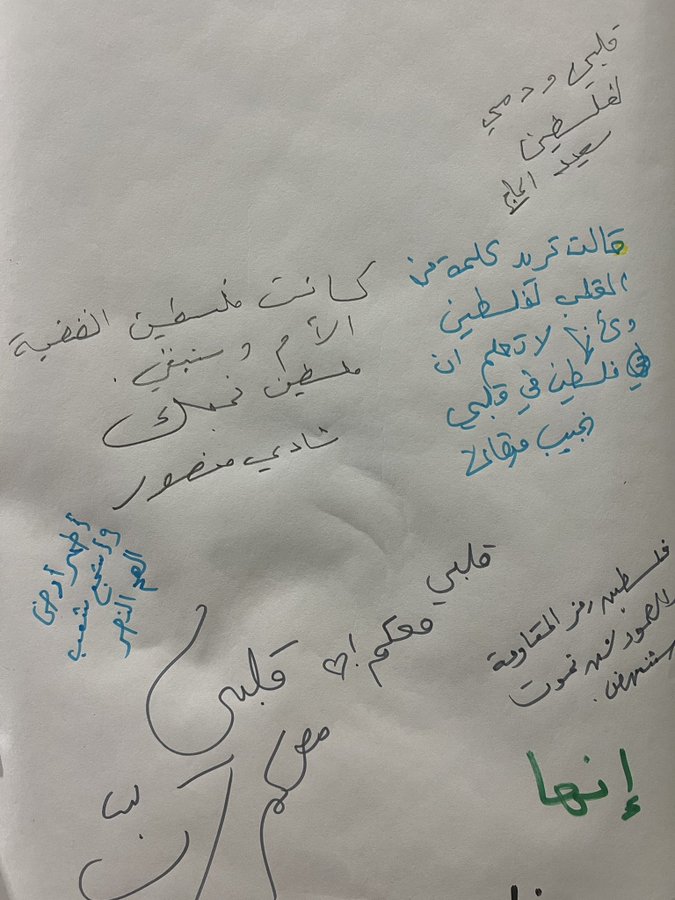 قلبي ودمي
لفلسطين
سعيد الحاج
قالت تريد كلمة من
القلب لفلسطين
وكأنها لا تعلم ان
فلسطين في قلبي
نجيب
كانت فلسطين القضية
الأم وستبقى.
فلسطين نحبك
شادي منصور
أطهر أرض
وأشجع شعب
النصر
قلبي
معكم!
قلبي
معكم
فلسطين رمز المقاومة
والصمود لن تموت
إنها